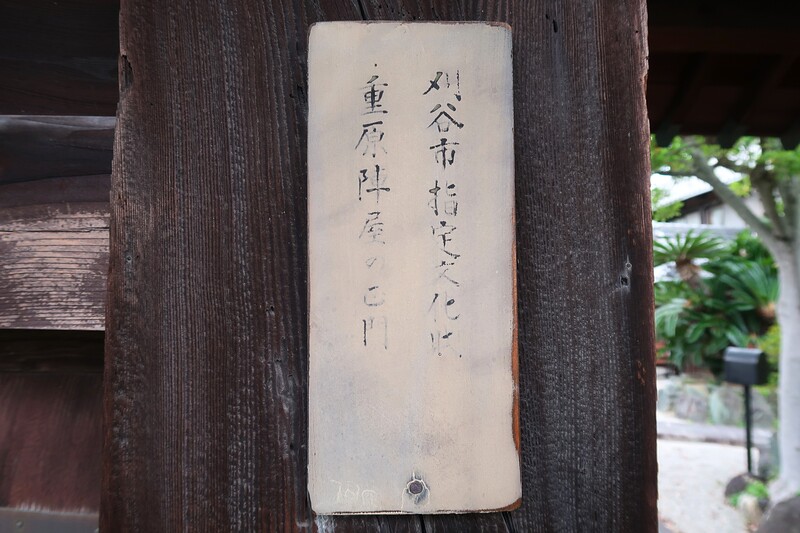 刈谷市指定文化財
重原陣屋の正門